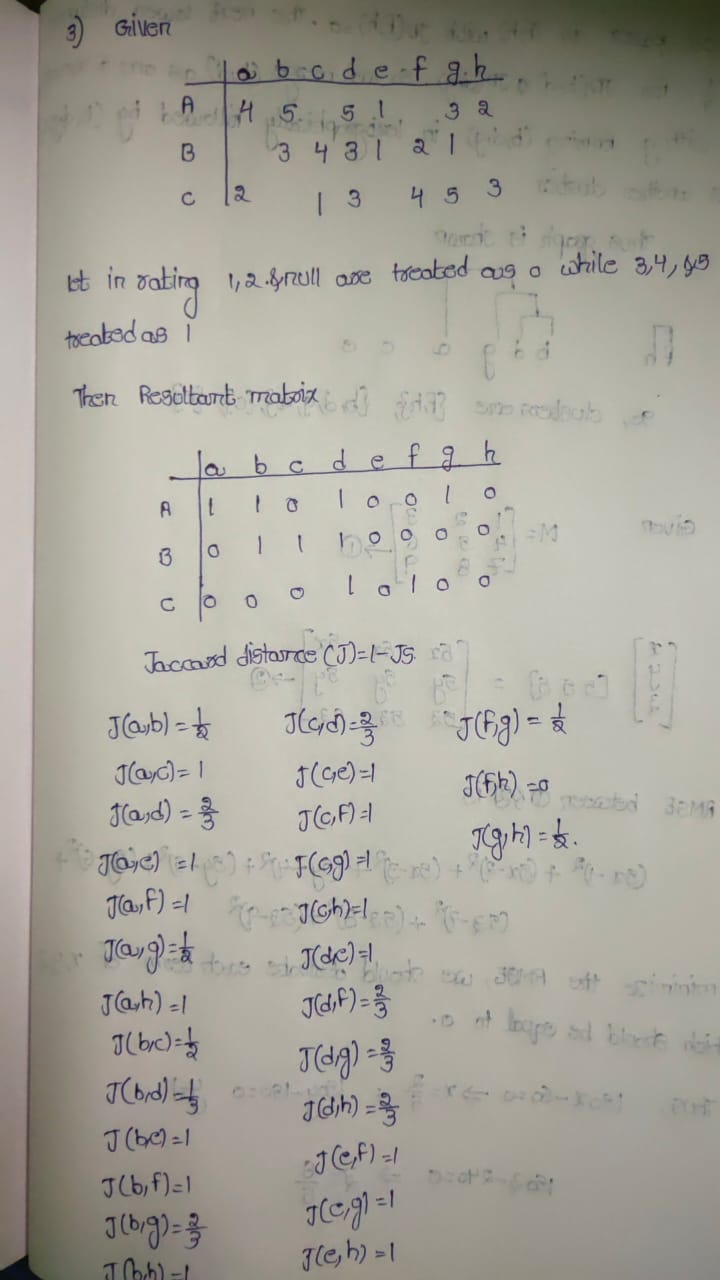 3) Given
a b c d e f g h
A 4 5 5 1 3 2
B 3 4 3 1 2 1
C 2 1 3 4 5 3
let in rating 1,2 & null are treated as 0 while 3,4, & 5
treated as 1
Then Resultant matrix
a b c d e f g h
A 1 1 0 1 0 0 1 0
B 0 1 1 1 0 0 0 0
C 0 0 0 1 0 1 0 0
Jaccard distance (J)=1-JS.
J(a,b) = 1/2
J(a,c) = 1
J(a,d) = 2/3
J(a,e) = 1
J(a,f) = 1
J(a,g) = 1/2
J(a,h) = 1
J(b,c) = 1/2
J(b,d) = 1/3
J(b,e) = 1
J(b,f) = 1
J(b,g) = 2/3
J(b,h) = 1
J(c,d) = 2/3
J(c,e) = 1
J(c,f) = 1
J(c,g) = 1
J(c,h) = 1
J(d,e) = 1
J(d,f) = 2/3
J(d,g) = 2/3
J(d,h) = 2/3
J(e,f) = 1
J(e,g) = 1
J(e,h) = 1
J(f,g) = 1/2
J(f,h) = 0
J(g,h) = 1/2.